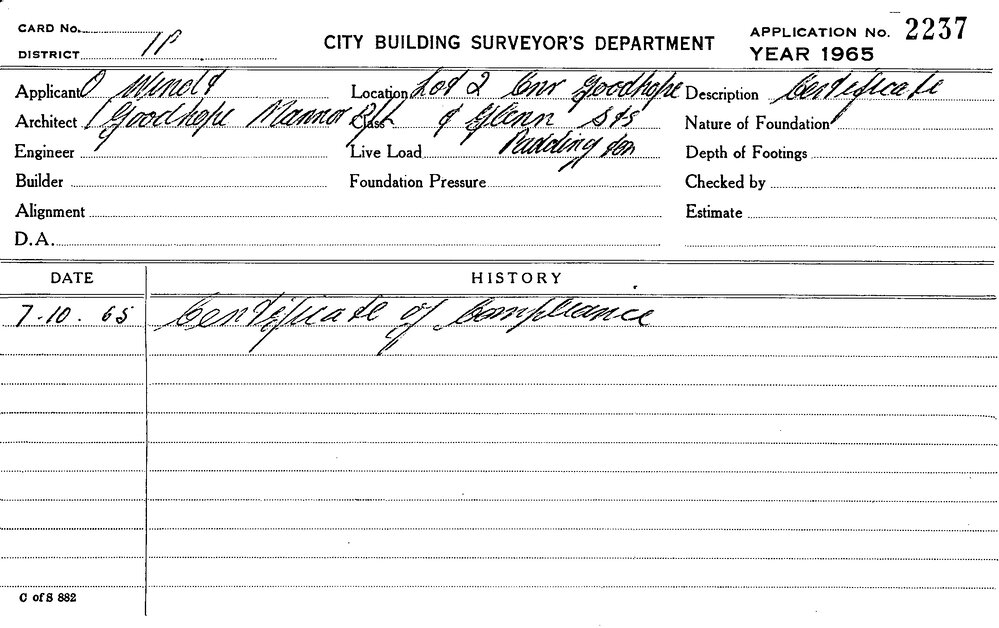 CARD No.
DISTRICT 1P
CITY BUILDING SURVEYOR'S DEPARTMENT
APPLICATION No. 2237
YEAR 1965
Applicant O
Location Lot 2 Cnr Goodhope
Description Certificate
Architect Goodhope Mannor
Class & Glenn Sts
Nature of Foundation
Engineer
Live Load Paddington
Depth of Footings
Builder
Foundation Pressure
Checked by
Alignment
Estimate
D.A.
DATE HISTORY
7-10.65 Certificate of Compliance
C of S 882